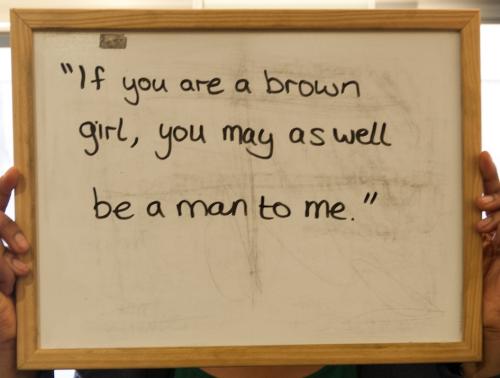 "If you are a brown
girl, you may as well
be a man to me."